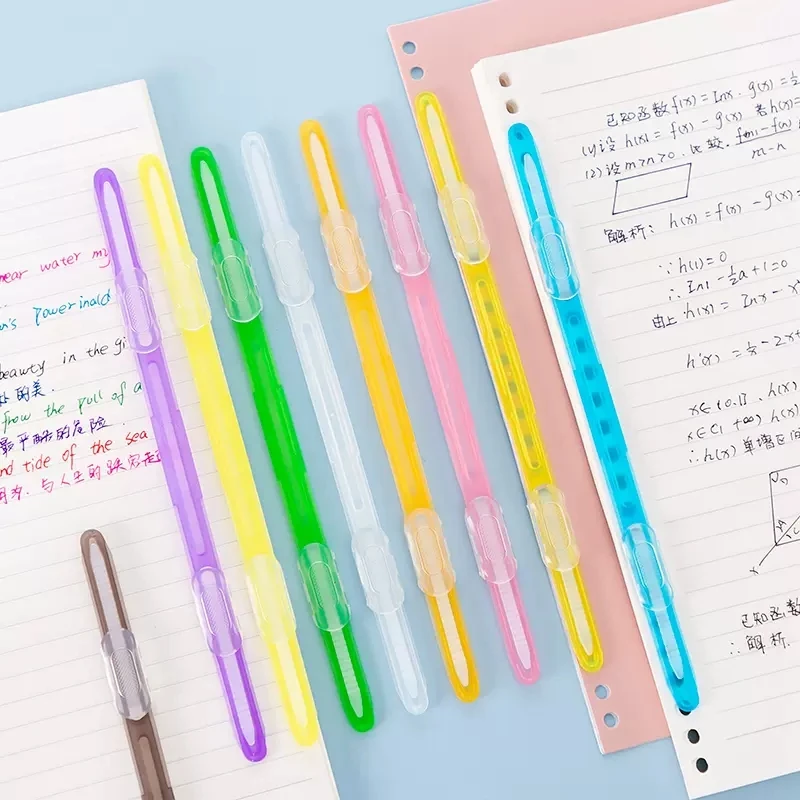 near water my
n's Powerinald
beauty in the gi
处的美.
from the pull of a
最平酷的危险.
nd tide of the sea
已知函数 f(x) = lnx. g(x) = ½
(1)设 h(x) = f(x) - g(x) 若 h(x) =
(2)设 m>n>0. 比较. f(m)-f(n)
m-n
解析: h(x) = f(x) - g(x) =
∵ h(1) = 0
∴ ln1 - ½a + 1 = 0
由上 h(x) = lnx - x
h'(x) = 1/x - 2x+
x∈(0.1]. h(x)
x∈(1 +∞) h(x)
∴ h(x) 单增区间
已知函数
∴ 解析.